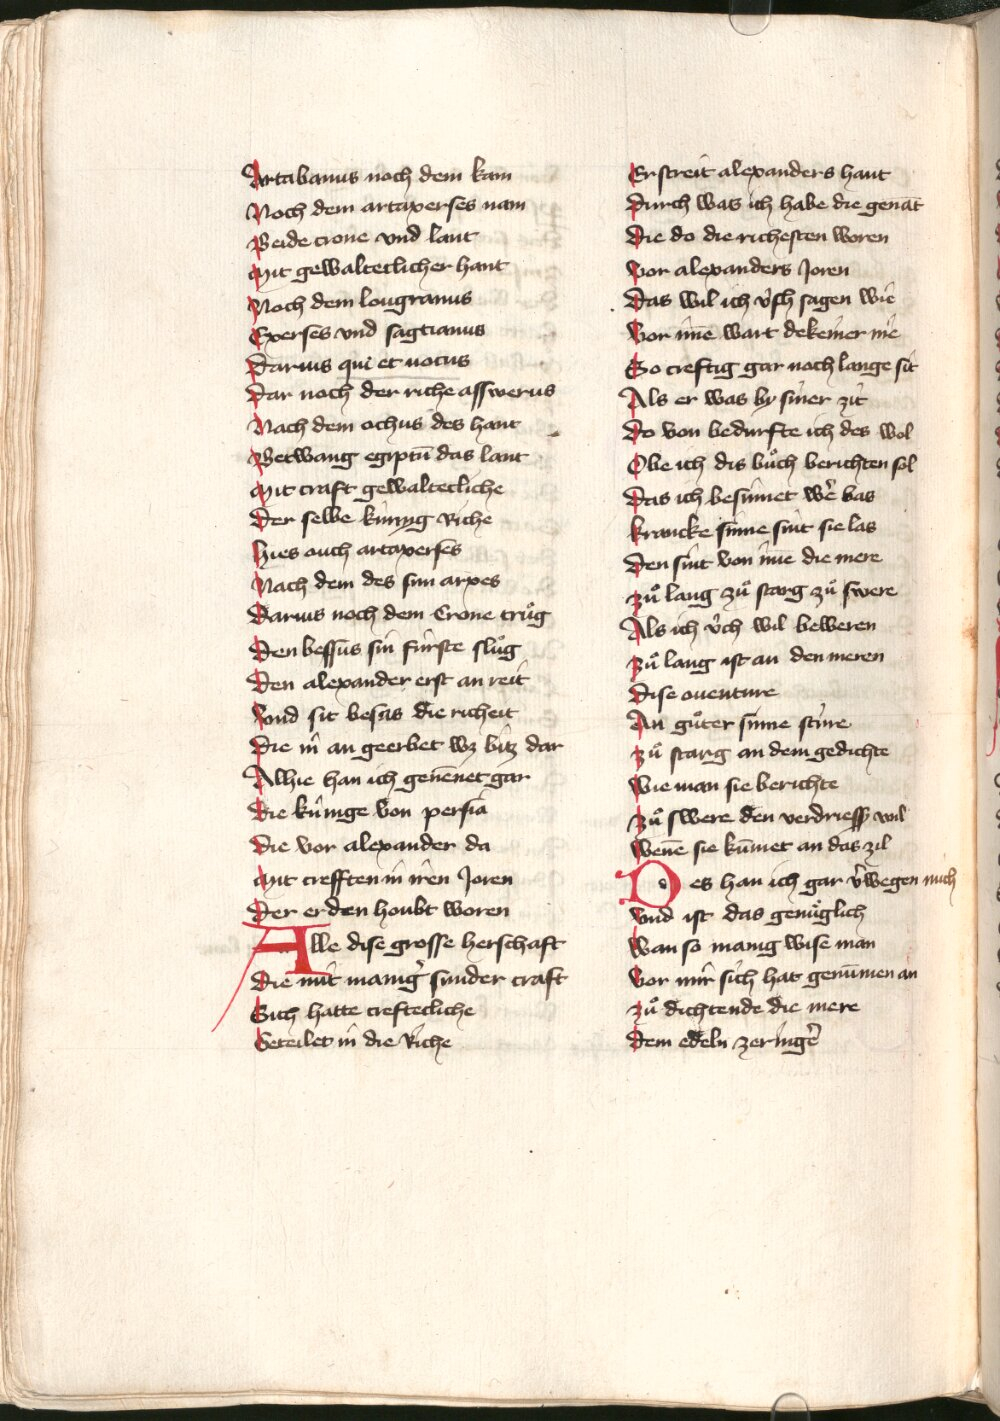 Artabanus noch dem kam
Noch dem artaxerses nam
Beide crone vnd lant
Mit gewalteclicher hant
Noch dem lougranus
Exerses vnd sagtianus
Darius qui et nocus
Dar noch der riche asswerus
Nach dem ochus des hant
Betwang egiptū das lant
Mit craft gewaltecliche
Der selbe kúnyg Riche
Hies ouch artaxerses
Nach dem des sun arxes
Darius noch dem Crone trůg
Den bessus sin fúrste slůg
Den alexander erst an reit
Vnd sit besas die richeit
Die in an geerbet wz bitz dar
Alhie han ich genēnet gar
Die kúnige von persia
Die vor alexander da
Mit crefften in iren Joren
Der erden houbt woren
Alle dise grosse herschaft
Die mit manig᷑ sunder craft
Sich hatte creftecliche
Geteilet in die Riche
Erstreit alexanders hant
Durch was ich habe die genāt
Die do die richesten woren
Vor alexanders Joren
Das wil ich v́ch sagen wie
Vor ime wart dekeiner me
So creftig gar noch lange sit
Als er was by siner zit
Do von bedurfte ich des wol
Obe ich dis bůch berichten sol
Das ich besinnet wer bas
Krancke sinne sint sie las
Den sint von ime die mere
Zů lang zů starg zů swere
Als ich v́ch wil beweren
Zů lang ist an den meren
Dise ouenture
An gůter sinne stúre
Zů starg an dem gedichte
Wie man sie berichte
Zů swere den verdriessen wil
Wenē sie kūmet an das zil
Des han ich gar v᷑wegen mich
Vnd ist das genůglich
Wan so manig wise man
Vor mir sich hat genūmen an
Zů dichtende die mere
Dem edeln zeringe᷑